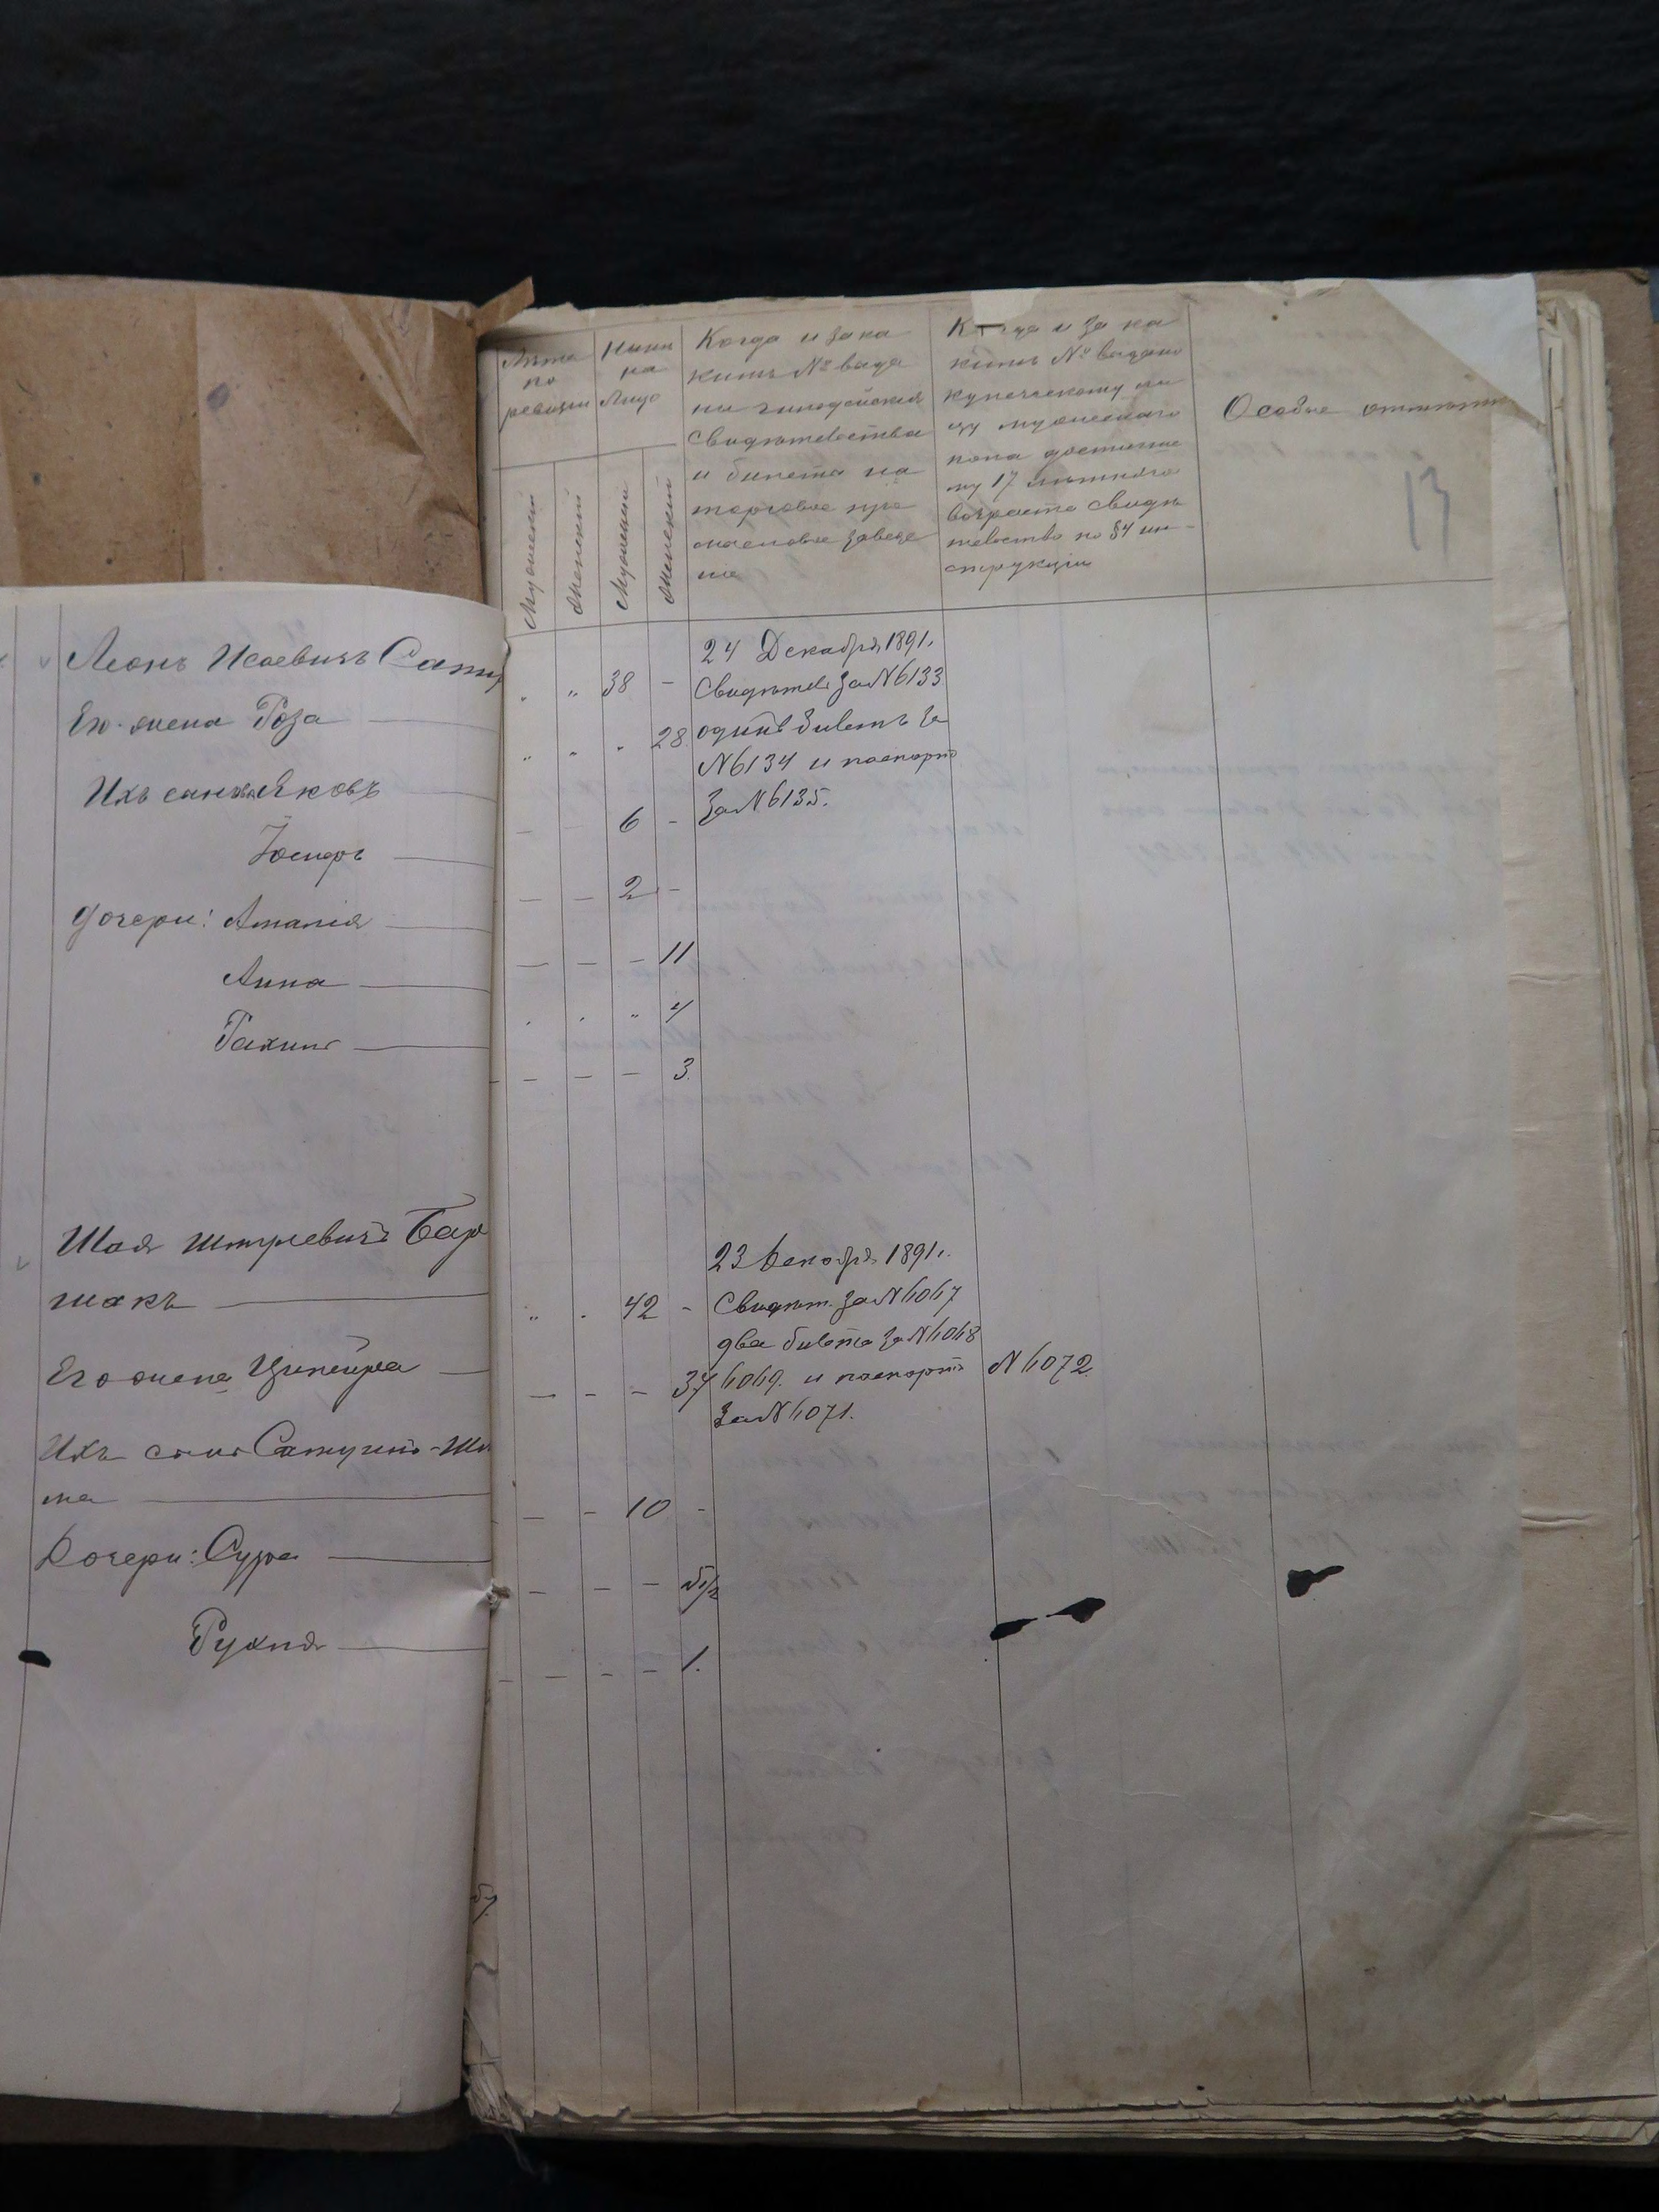 Лѣта
по
ревизіи
Мужескій
Женскій
Ныни
на
Лицо
Мужескій
Женскій
Когда и за ка
кимъ № выда
ны гильдейскія
свидѣтельства
и билета на
торговое про
мысловое заведе
ніе
Когда и за ка
кимъ № выдано
купеческому ли
цу мужескаго
пола достигше
му 17 лѣтняго
возраста свидѣ
тельство по §4 ин-
струкціи
Особые отмѣтки
13
Леонъ Исаевичъ
" " 38 -
24 Декабря 1891.
Свидѣтел. за N 6133
Его жена Роза
" " " 28
одинъ билетъ за
N 6134 и паспортъ
за N 6135.
Ихъ сыновья Яковъ
- - 6 -
Іосифъ
- - 2 -
Дочери: Амалія
- - - 11
Анна
" " " 4
Рахиль
- - - 3.
Шая Шмулевичъ Бар
шакъ
" " 42 -
23 Декабря 1891.
Свидѣт. за N 6067
два билета за N 6068
6069. и паспортъ
за N 6071.
N 6072.
Его жена Ципейра
- - - 37
Ихъ сынъ Самуилъ-Ши
ма
- - 10 -
Дочери: Сура
- - -
Рухля
- - - 1.